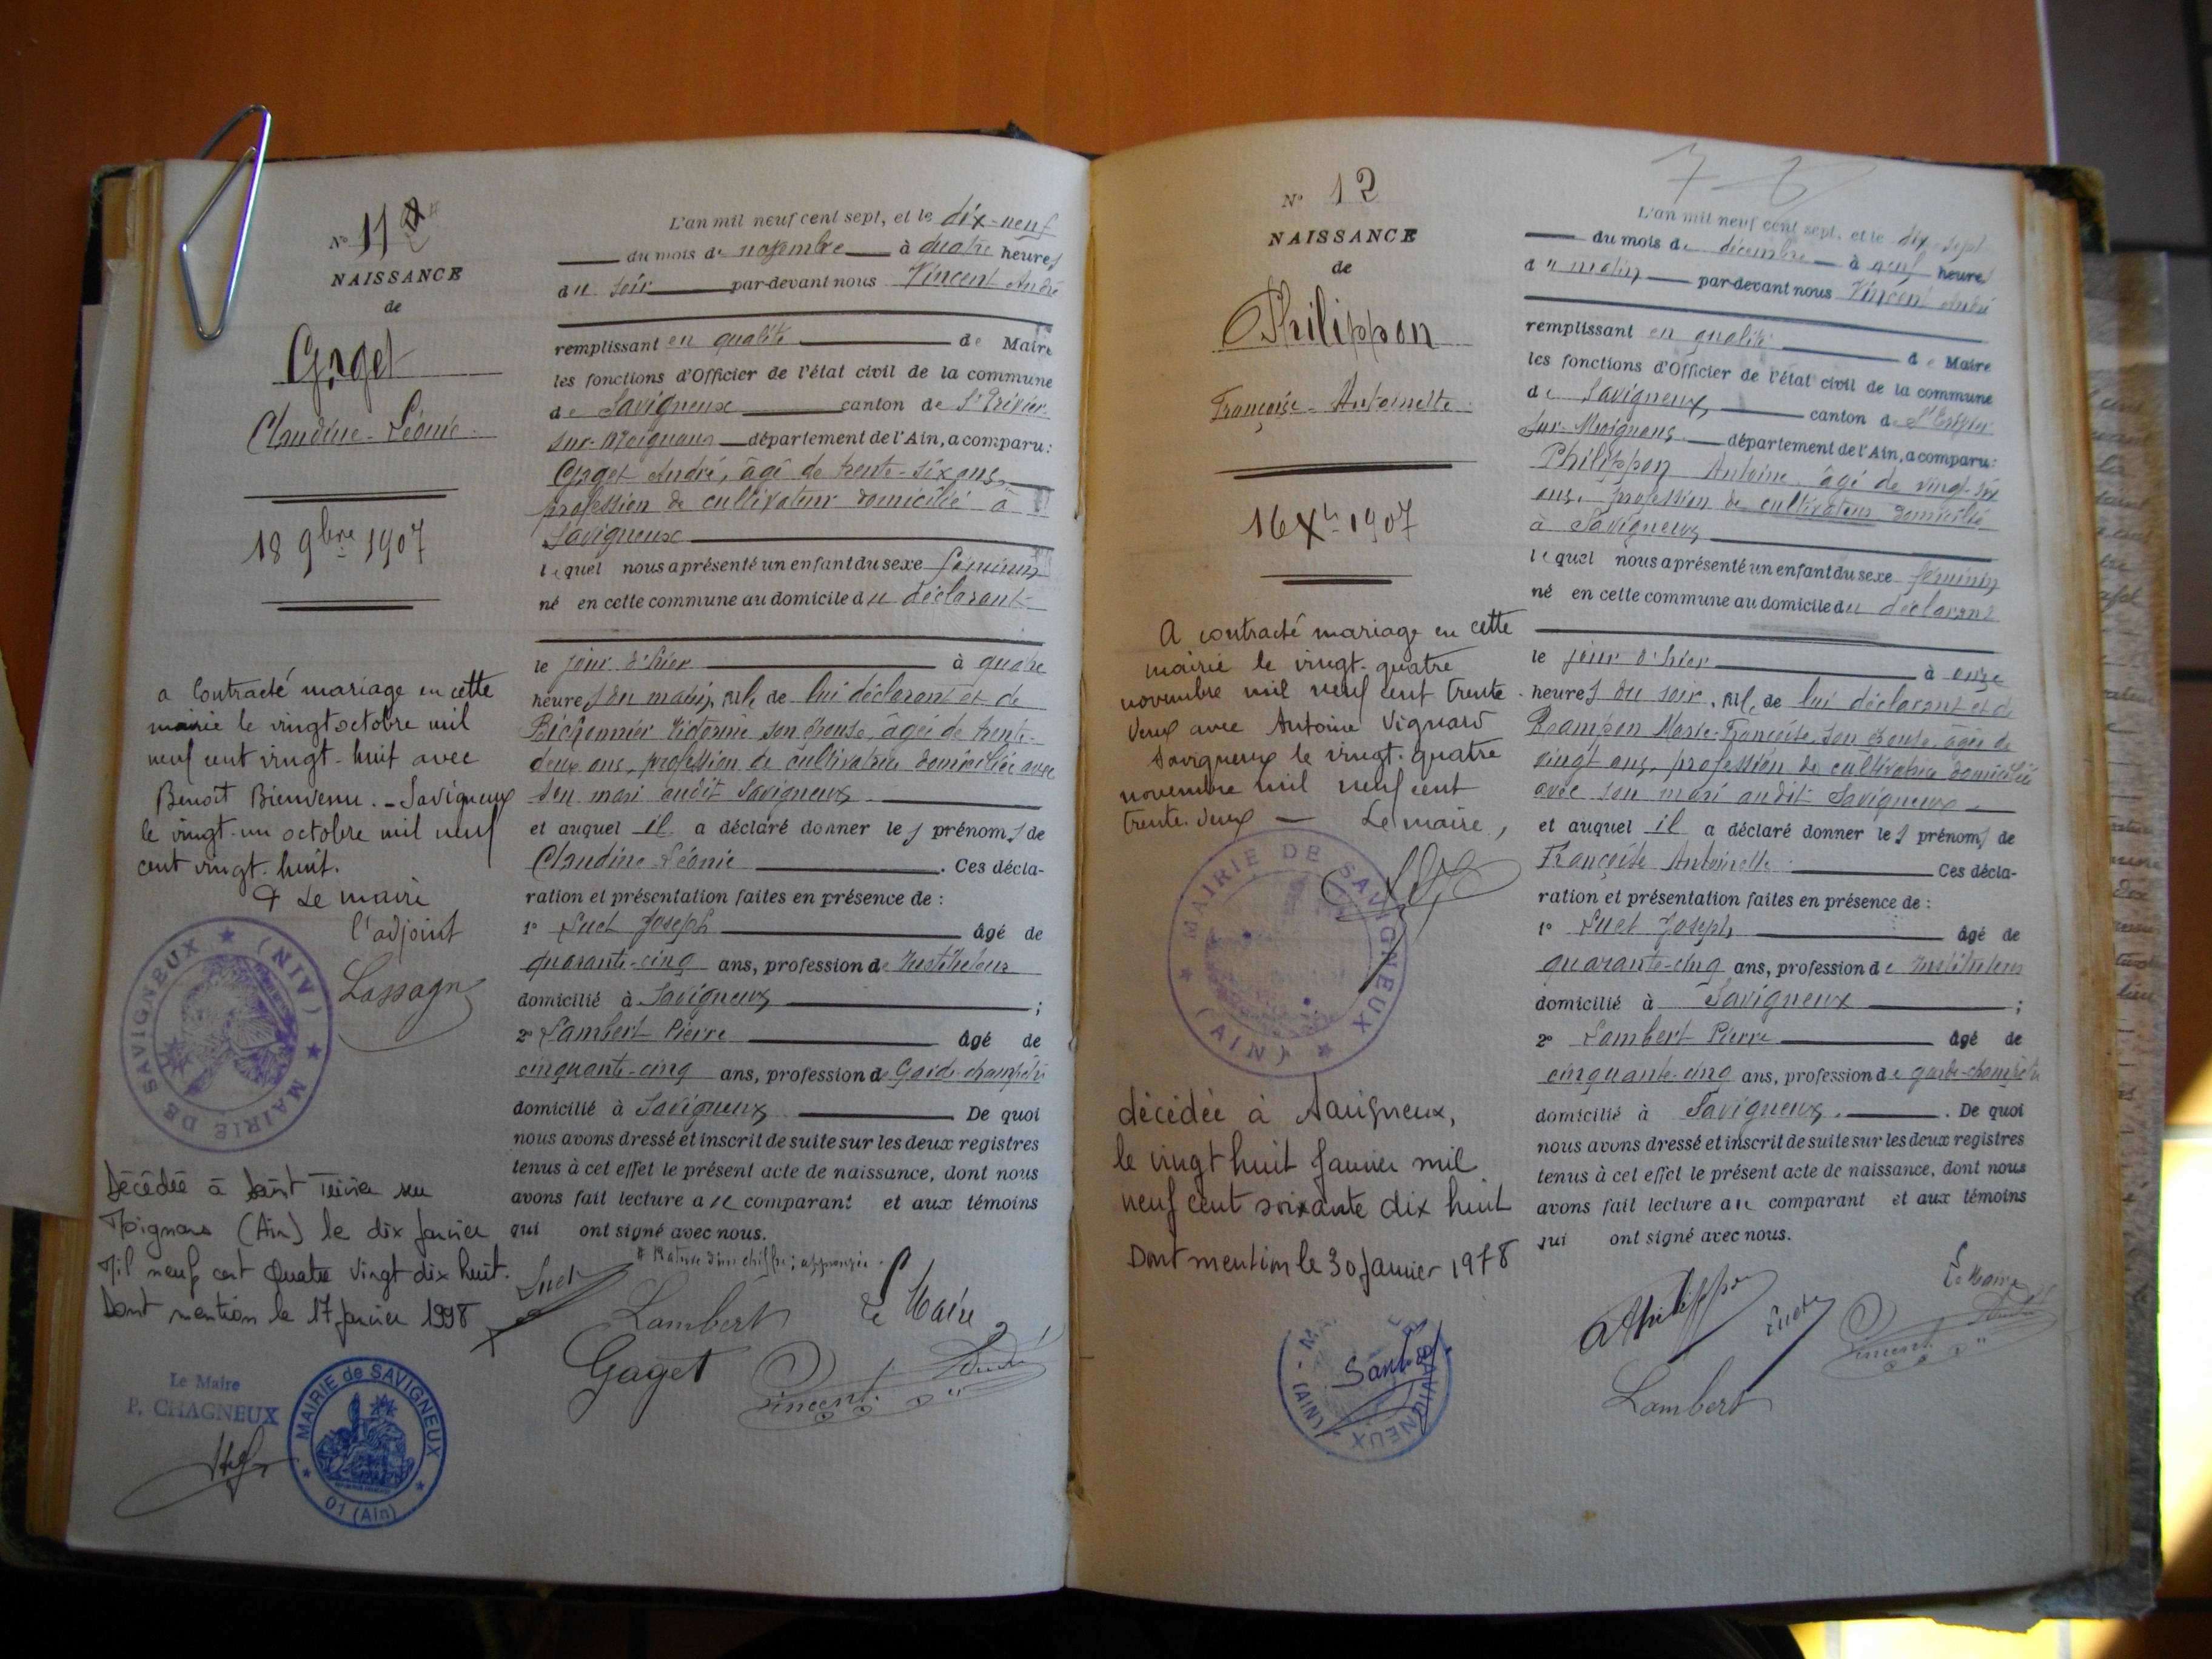 N° 11
NAISSANCE
de
Gaget
Claudine-Léonie
18 9bre 1907
a Contracté mariage en cette
mairie le vingt octobre mil
neuf cent vingt-huit avec
Benoît Bienvenu. - Savigneux
le vingt-un octobre mil neuf
cent vingt-huit.
Le maire
l'adjoint
Lassagne
MAIRIE DE SAVIGNEUX ★ (AIN) ★
Décédée à Saint Trivier sur
Moignans (Ain) le dix janvier
Mil neuf cent Quatre Vingt dix huit.
Dont mention le 17 janvier 1998
Le Maire
P. CHAGNEUX
MAIRIE de SAVIGNEUX
01 (Ain)
L'an mil neuf cent sept, et le dix-neuf
du mois de novembre à quatre heures
du soir par-devant nous Vincent André
remplissant en qualité de Maire
les fonctions d'Officier de l'état civil de la commune
de Savigneux canton de St Trivier
sur-Moignans département de l'Ain, a comparu :
Gaget André, âgé de trente-six ans,
profession de cultivateur domicilié à
Savigneux
lequel nous a présenté un enfant du sexe féminin
né en cette commune au domicile du déclarant
le jour d'hier à quatre
heures du matin, de lui déclarant et de
son épouse, âgée de trente-
deux ans, profession de cultivatrice domiciliée avec
son mari audit Savigneux
et auquel il a déclaré donner les prénoms de
Claudine Léonie. Ces décla-
ration et présentation faites en présence de :
1° Suet Joseph âgé de
quarante-cinq ans, profession de Instituteur
domicilié à Savigneux ;
2° Lambert Pierre âgé de
cinquante-cinq ans, profession de Garde-champêtre
domicilié à Savigneux De quoi
nous avons dressé et inscrit de suite sur les deux registres
tenus à cet effet le présent acte de naissance, dont nous
avons fait lecture au comparant et aux témoins
qui ont signé avec nous.
# Rature d'un chiffre ; approuvée.
Suet
Lambert
Le Maire
Gaget
Vincent André
N° 12
NAISSANCE
de
Philippon
Françoise-Antoinette
16 Xbre 1907
A contracté mariage en cette
mairie le vingt-quatre
novembre mil neuf cent trente
deux avec Antoine Vignard
Savigneux le vingt-quatre
novembre mil neuf cent
trente-deux — Le maire,
MAIRIE DE SAVIGNEUX ★ (AIN) ★
décédée à Savigneux,
le vingt huit janvier mil
neuf cent soixante dix huit
Dont mention le 30 janvier 1978
L'an mil neuf cent sept, et le dix-sept
du mois de décembre à neuf heures
du matin par-devant nous Vincent André
remplissant en qualité de Maire
les fonctions d'Officier de l'état civil de la commune
de Savigneux, canton de St Trivier
sur-Moignans département de l'Ain, a comparu :
Philippon Antoine âgé de vingt-six
ans, profession de cultivateur domicilié
à Savigneux
lequel nous a présenté un enfant du sexe féminin
né en cette commune au domicile du déclarant
le jour d'hier à onze
heures du soir, de lui déclarant et de
Marie-Françoise, son épouse, âgée de
vingt ans, profession de cultivatrice domiciliée
avec son mari audit Savigneux
et auquel il a déclaré donner les prénoms de
Françoise Antoinette. Ces décla-
ration et présentation faites en présence de :
1° Suet Joseph âgé de
quarante-cinq ans, profession de Instituteur
domicilié à Savigneux ;
2° Lambert Pierre âgé de
cinquante-cinq ans, profession de garde-champêtre
domicilié à Savigneux. De quoi
nous avons dressé et inscrit de suite sur les deux registres
tenus à cet effet le présent acte de naissance, dont nous
avons fait lecture au comparant et aux témoins
qui ont signé avec nous.
Le Maire
APhilippon
Suet
Vincent André
Lambert